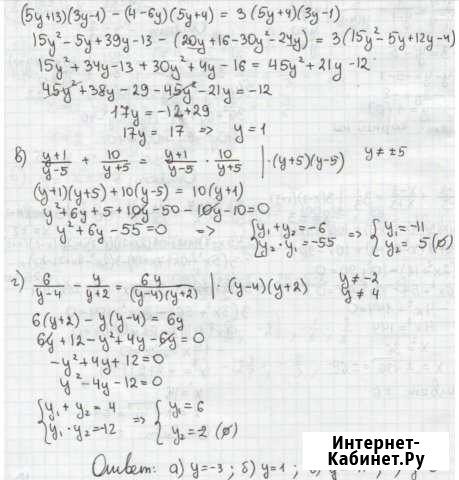 (5y+13)(3y-1) - (4-6y)(5y+4) = 3(5y+4)(3y-1)
15y²-5y+39y-13 - (20y+16-30y²-24y) = 3(15y²-5y+12y-4)
15y²+34y-13+30y²+4y-16 = 45y²+21y-12
45y²+38y-29-45y²-21y = -12
17y = -12+29
17y = 17 => y = 1
в) (y+1)/(y-5) + 10/(y+5) = (y+1)/(y-5) · 10/(y+5) | ·(y+5)(y-5) y ≠ ±5
(y+1)(y+5)+10(y-5) = 10(y+1)
y²+6y+5+10y-50-10y-10=0
y²+6y-55=0 => { y₁+y₂=-6 ; y₂·y₁=-55 => { y₁=-11 ; y₂= 5 (∅)
г) 6/(y-4) - y/(y+2) = 6y/((y-4)(y+2)) | ·(y-4)(y+2) y≠-2 y≠4
6(y+2) - y(y-4) = 6y
6y+12-y²+4y-6y=0
-y²+4y+12=0
y²-4y-12=0
{ y₁+y₂=4 ; y₁·y₂=-12 => { y₁=6 ; y₂=2 (∅)
Ответ: а) y=-3; б) y=1;
Интернет-
Кабинет.Ру